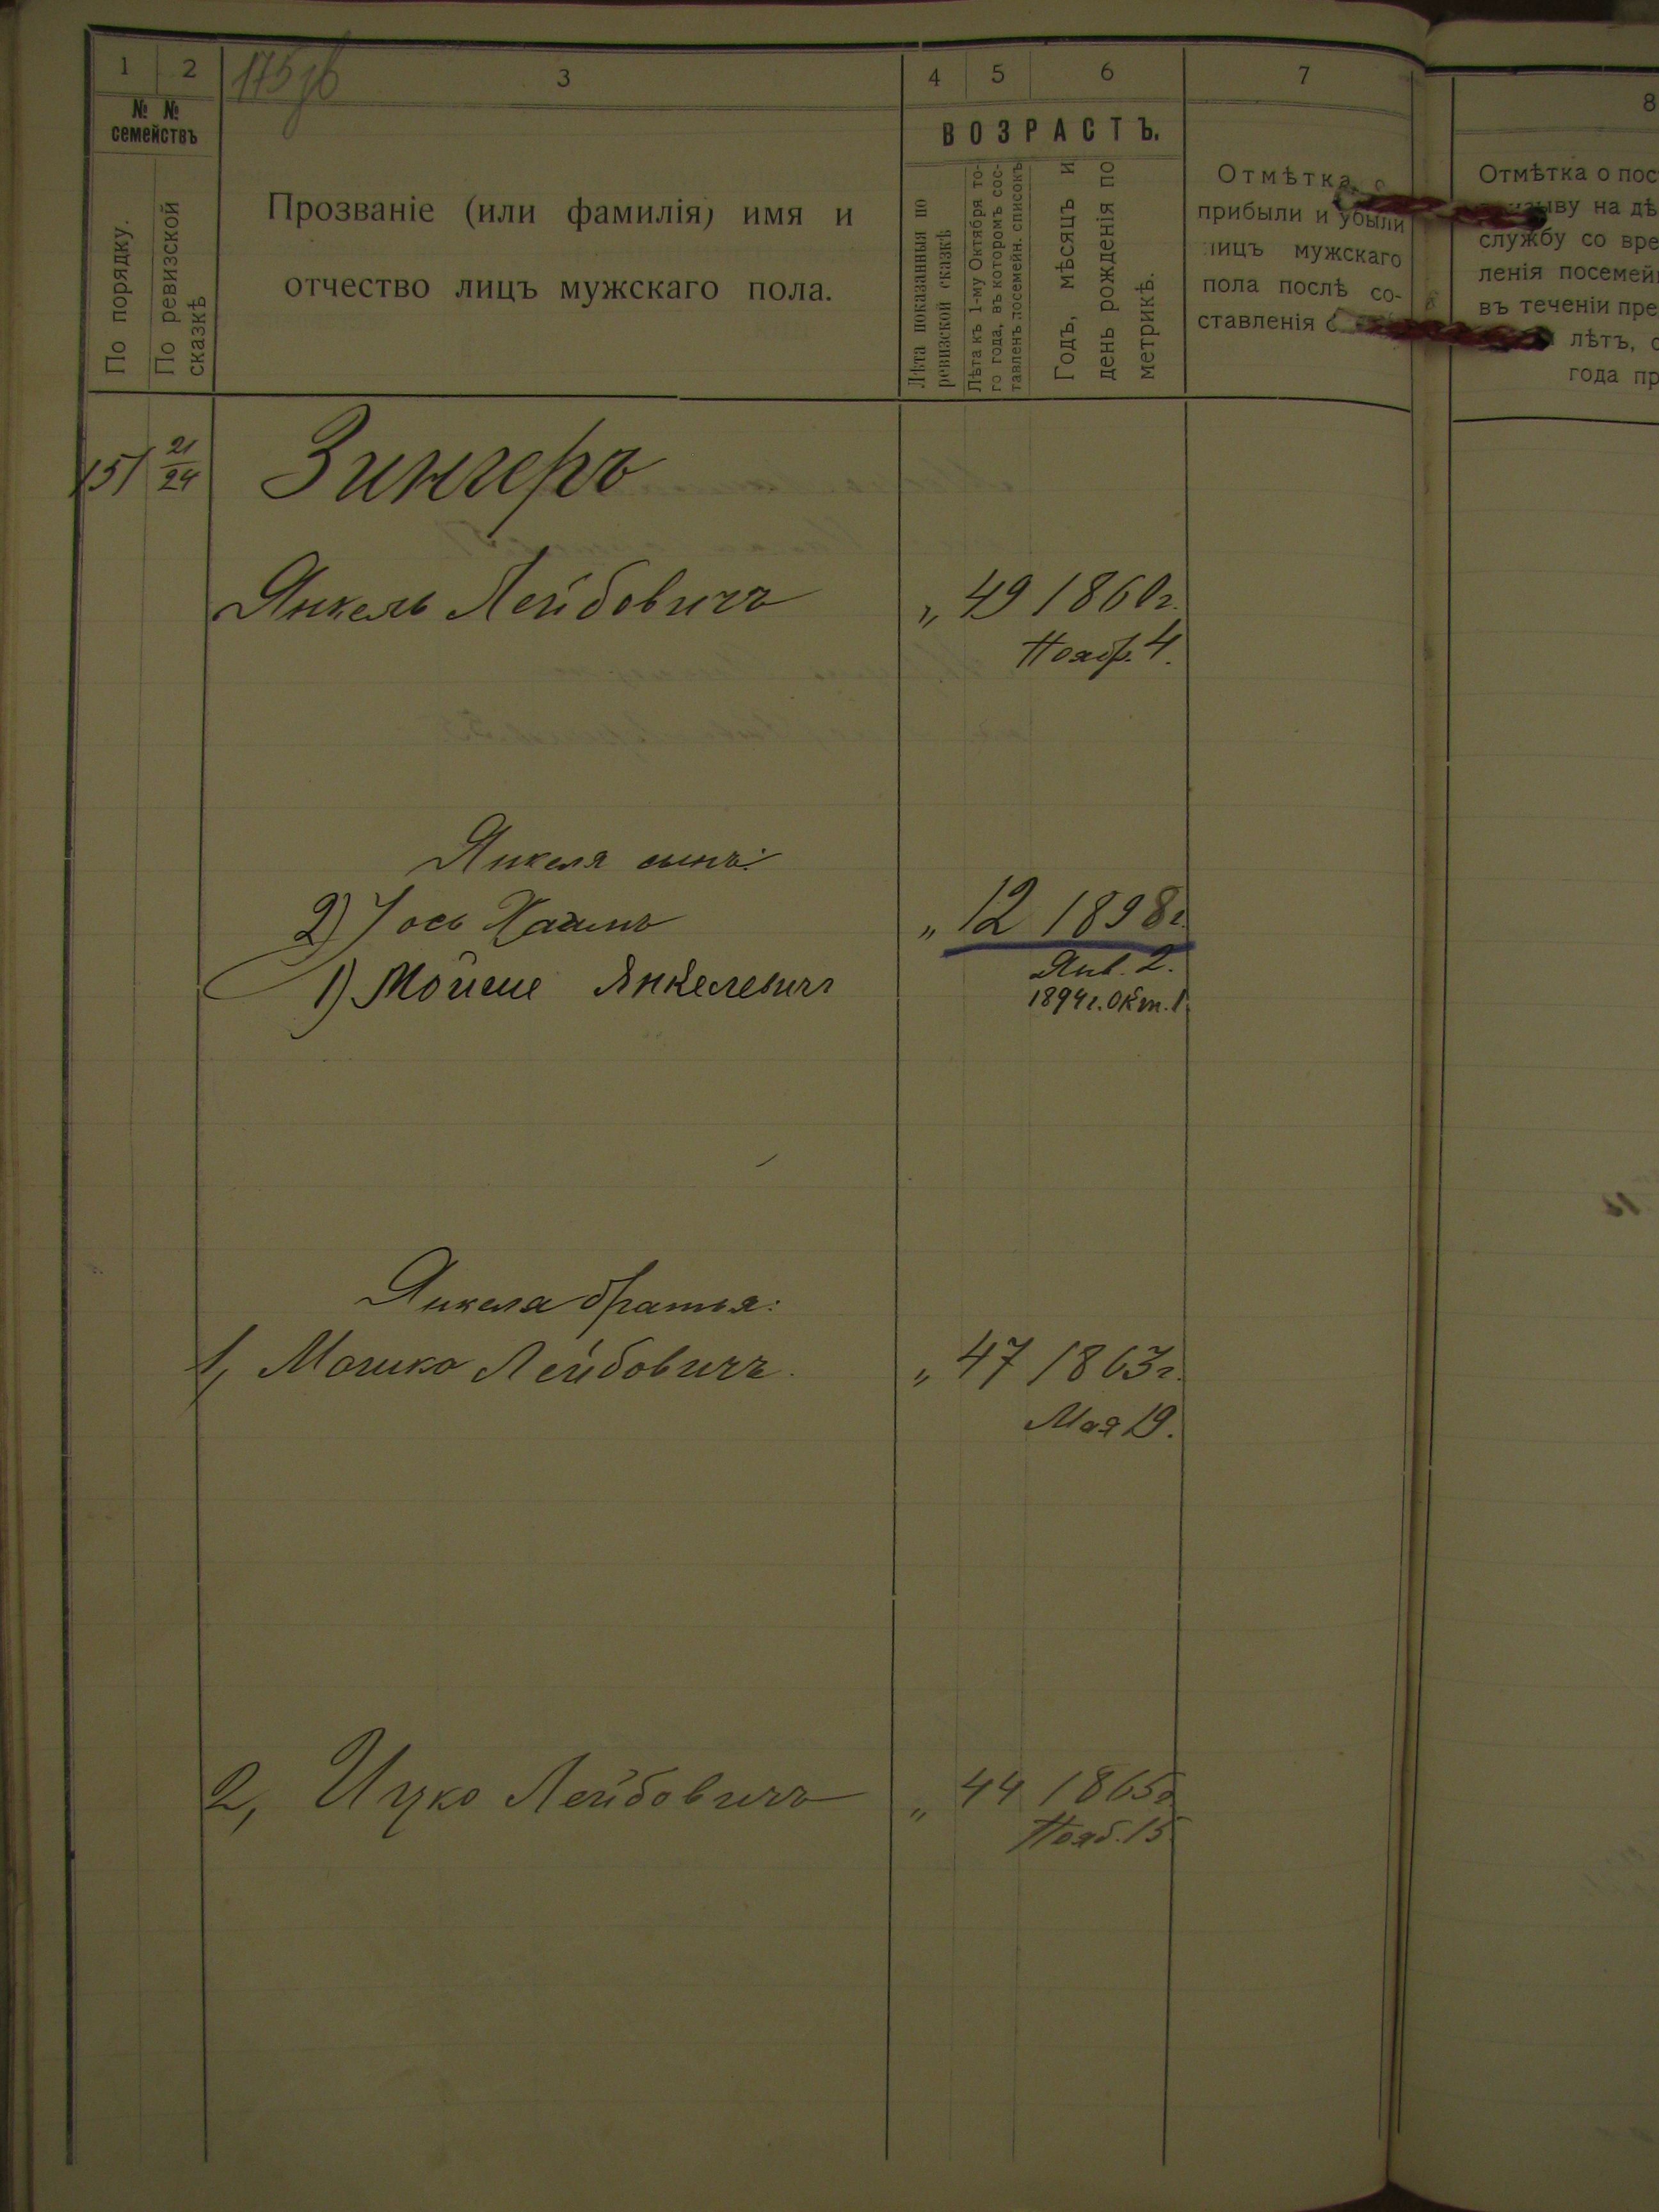 1 2 3 4 5 6 7 8
175об
№ №
семействъ
По порядку.
По ревизской
сказкѣ
Прозваніе (или фамилія) имя и
отчество лицъ мужскаго пола.
ВОЗРАСТЪ.
Лѣта показанныя по
ревизской сказкѣ
Лѣта къ 1-му Октября то-
го года, въ которомъ сос-
тавленъ посемейн. списокъ
Годъ, мѣсяцъ и
день рожденія по
метрикѣ.
Отмѣтка о
прибыли и убыли
лицъ мужскаго
пола послѣ со-
ставленія
Отмѣтка о пос
на дѣ
службу со вре
ленія посемей
въ теченіи пре
лѣтъ, о
года пр
151 21/24 Зингеръ
Янкель Лейбовичъ „ 49 1860г.
Нояб. 4.
Янкеля сынъ:
2) Іось Хаимъ „ 12 1898г.
Янв. 2.
1) Мойше Янкелевичъ 1894г. Окт. 1
Янкеля братья:
1, Мошко Лейбовичъ. „ 47 1863г.
Мая 19.
2, Ицко Лейбовичъ „ 44 1865г
Нояб. 15